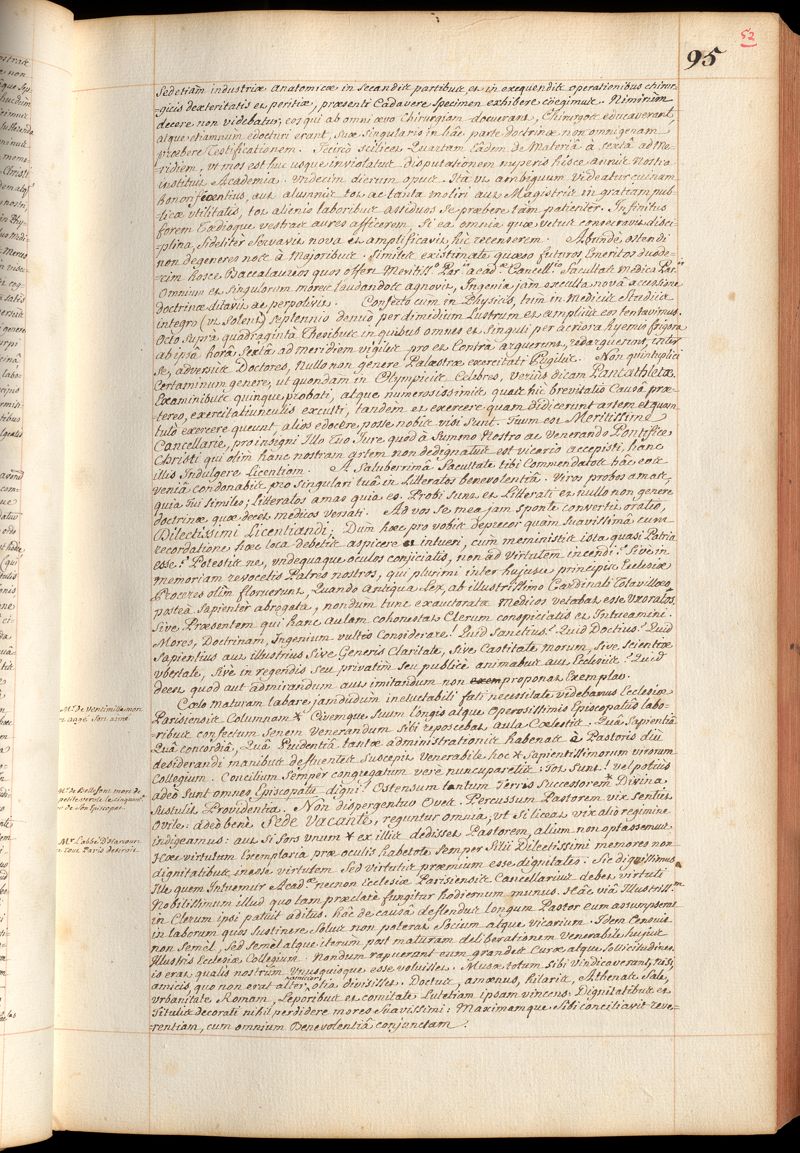 52
95
sed etiam industriæ anatomicæ in secandis partibus et in exequendis operationibus chirur-
=gicis dexteritatis et peritiæ, præsenti Cadavere specimen exhibere coegimus. Nimirum
decere non videbatur, eos qui ab omni ævo Chirurgiam docuerant, Chirurgos educaverant,
atque etiamnum edocturi erant, suæ singularis in hâc parte doctrinæ non omnigenam
præbere Testificationem. scilicet Quartam Eâdem de Materiâ à sextâ ad Me-
ridiem, ut mos est huc usque inviolatus disputationem nuperis hisce annis nostra
instituit Academia. Undecim dierum opus. Ità ut ambiguum videatur cuinam
aut alumnis tot ac tanta moliri aut Magistris in gratiam pub-
licæ utilitatis, tot alienis laboribus assiduos se præbere tàm patienter. Infinitus
forem Tædioque vestras aures afficerem, si ea omnia quæ vetus consecravit disci-
plina, fideliter servavit nova et amplificavit, hic recenserem. Abundè ostendi
non degeneres nos à Majoribus. Similes existimate quæso futuros Emeritos duode-
cim hosce Baccalaureos quos offert Meritiss.º Par.is acad. Cancell.º Facultas medica Par.is
Omnium et singulorum mores laudandos agnovit, Ingenia jam exculta nova accessione
doctrinæ ditavit ac perpolivit. Confecto cùm in Physicis, tùm in Medicis studiis
integro (ut solent) septennio denuò per dimidium Lustrum et ampliùs contentavimus.
Octo suprà quadraginta Thesibus in quibus omnes et singuli per acriora hyemis frigora
ab ipsâ horâ sextâ ad meridiem vigiles pro et contrà arguerent, redarguerent, inter
se, adversùs Doctores, nullo non genere Palæstræ exercitati Pugiles. Non quintuplici
Certaminum genere, ut quondam in Olympicis Celebres, veriùs dicam Pancathletæ.
Examinibus quinque probati, atque numerosissimis quas hîc brevitatis Causâ præ-
tereo, exercitatiunculis excussi, tandem et exercere quam didicerunt artem et quan-
tulò exercere queunt, alios edocere posse nobis visi sunt. Tuum est Meritissime
Cancellarie, pro insigni Illo Tuo Jure quod à Summo Nostro ac Venerando Pontifice
Christi qui olim hanc nostram artem non dedignatus est vicario accepisti, hanc
illis Indulgere Licentiam. A Saluberrimâ Facultate tibi Commendatos hâc eos
veniâ condonabis pro singulari tuâ in Litteratos benevolentiâ. Viros probos amas,
quia Tui similes; Litteratos amas quia es. Probi sunt et Litterati et nullo non genere
doctrinæ quæ decet medicos versati. Ad vos se mea jam sponte convertit oratio,
Dilectissimi Licentiandi; Dum hæc pro vobis deprecor quàm suavissimâ cum
recordatione hæc loca debetis aspicere et intueri, cum meministis ista quasi Patria
esse? Potestis ne, undequaque oculos conjiciatis, non ad virtutem incendi? Sive in
memoriam revocetis Patres nostros, qui plurimi inter hujusce principis Ecclesiæ
Proceres olim floruerunt, Quando antiqua Lex, ab illustrissimo Cardinali Totavillæo
posteà sapienter abrogata, nondum tunc exauctorata Medicos vetabat esse Uxoratos
Sive Præsentem qui hanc aulam cohonestat Clerum conspiciatis et Intueamini.
Mores, Doctrinam, Ingenium vultis Considerare! Quid Sanctius? Quid Doctius? Quid
Sapientius aut illustrius sive Generis Claritate, sive Castitate morum, sive scientiæ
ubertate, sive in regendis seu privatim seu publicè animabus aut Ecclesiis? Quid
deest quod aut admirandum aut imitandum non proponat Exemplar.
Cælo maturam labare jamdudum ineluctabili fati necessitate videbamus Ecclesiæ
Parisiensis Columnam * Civemque suum longis atque Operosissimis Episcopatûs labo-
ribus confectum Senem venerandum sibi reposcebat aula Cælestis. Quâ Sapientiâ
Quâ concordiâ, Quâ Prudentiâ tantæ administrationis habenas à Pastoris diù
desiderandi manibus defluentes suscepit Venerabile hoc * Sapientissimorum virorum
Collegium. Concilium semper congregatum verè nuncupaveris: Tot sunt! vel potiùs
adeò sunt omnes Episcopatu digni! Ostensum tantùm Terris Successorem * Divina
Sustulit Providentia. Non disperguntur Oves. Percussum Pastorem vix sentit
Ovile: adeò bene Sede Vacante, reguntur omnia, ut si liceat vix alio regimine
indigeamus: aut si sors unum * ex illis dedisset Pastorem, alium non optassemus
Hæc virtutum Exemplaria præ oculis habetote semper Filii Dilectissimi memores non
dignitatibus inesse virtutem sed virtutis præmium esse dignitates: Sic dignissimus
Ille quem Intuemur Acad.æ necnon Ecclesiæ Parisiensis Cancellarius debet virtuti
Nobilissimum illud quo tam præclarè fungitur hodiernum munus. Hâc viâ Illustriss.m
in Clerum ipsi patuit aditus. hâc de causâ deflendus longùm Pastor eum assumpserat
in laborum quos sustinere solus non poterat Socium atque vicarium. Idem Censuit
non semèl, sed semèl atque iterum post maturam deliberationem Venerabile hujus
Illustris Ecclesiæ Collegium. Nondum rapuerant eum grandes Curæ atque sollicitudines
is erat qualis nostrûm unusquisque esse voluisset. Musæ totum sibi vindicaverant, nisi,
amicis, quo non erat alter amicior, otia divisisset. Doctus, amænus, hilaris, Athenas Sale,
urbanitate Romam, Leporibus et comitate Lutetiam ipsam vincens. Dignitatibus et
Titulis decorati nihil perdidere mores suavissimi: Maximamque sibi conciliavit reve-
=rentiam, cum omnium Benevolentiâ conjunctam.
M.r de Ventimille mort
aagé
M.r de Bellefont mort de
petite verole le cinquan.e
de son Episcopat.
M.r l'abbé D'harcourt
que tout Paris desiroit.